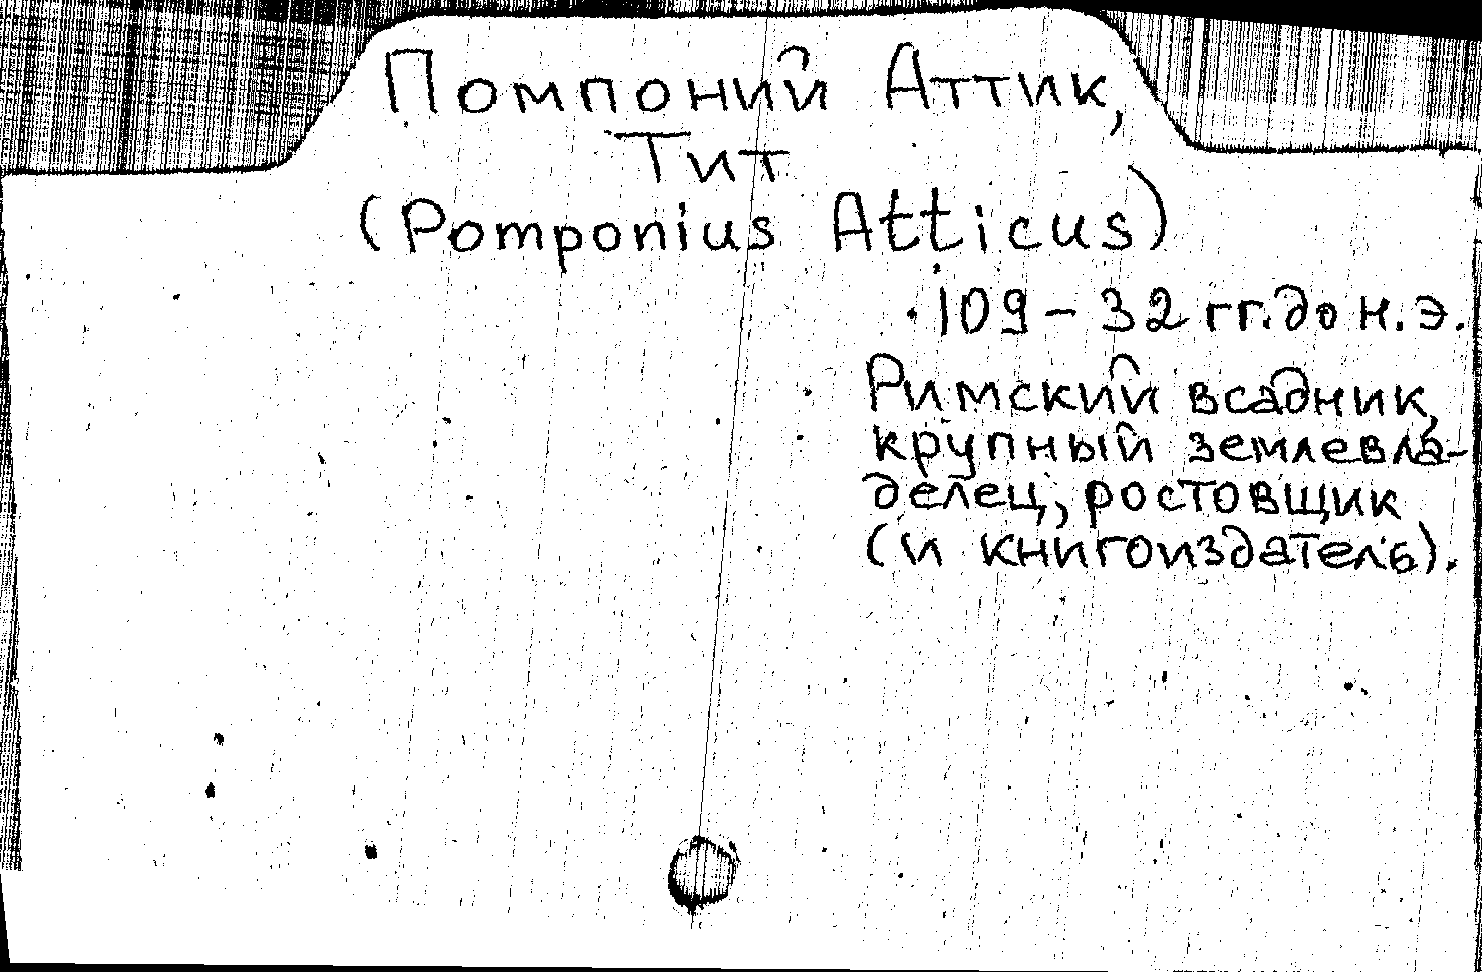 Помпоний Аттик,
Тит
(Pomponius Atticus)
109 – 32 гг. до н. э.
Римский всадник,
крупный землевла-
делец, ростовщик
(и книгоиздатель).